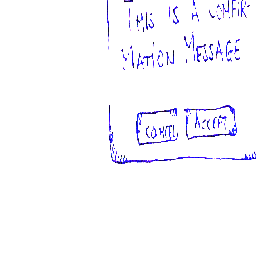 THIS IS A CONFIR-
MATION MESSAGE
ACCEPT